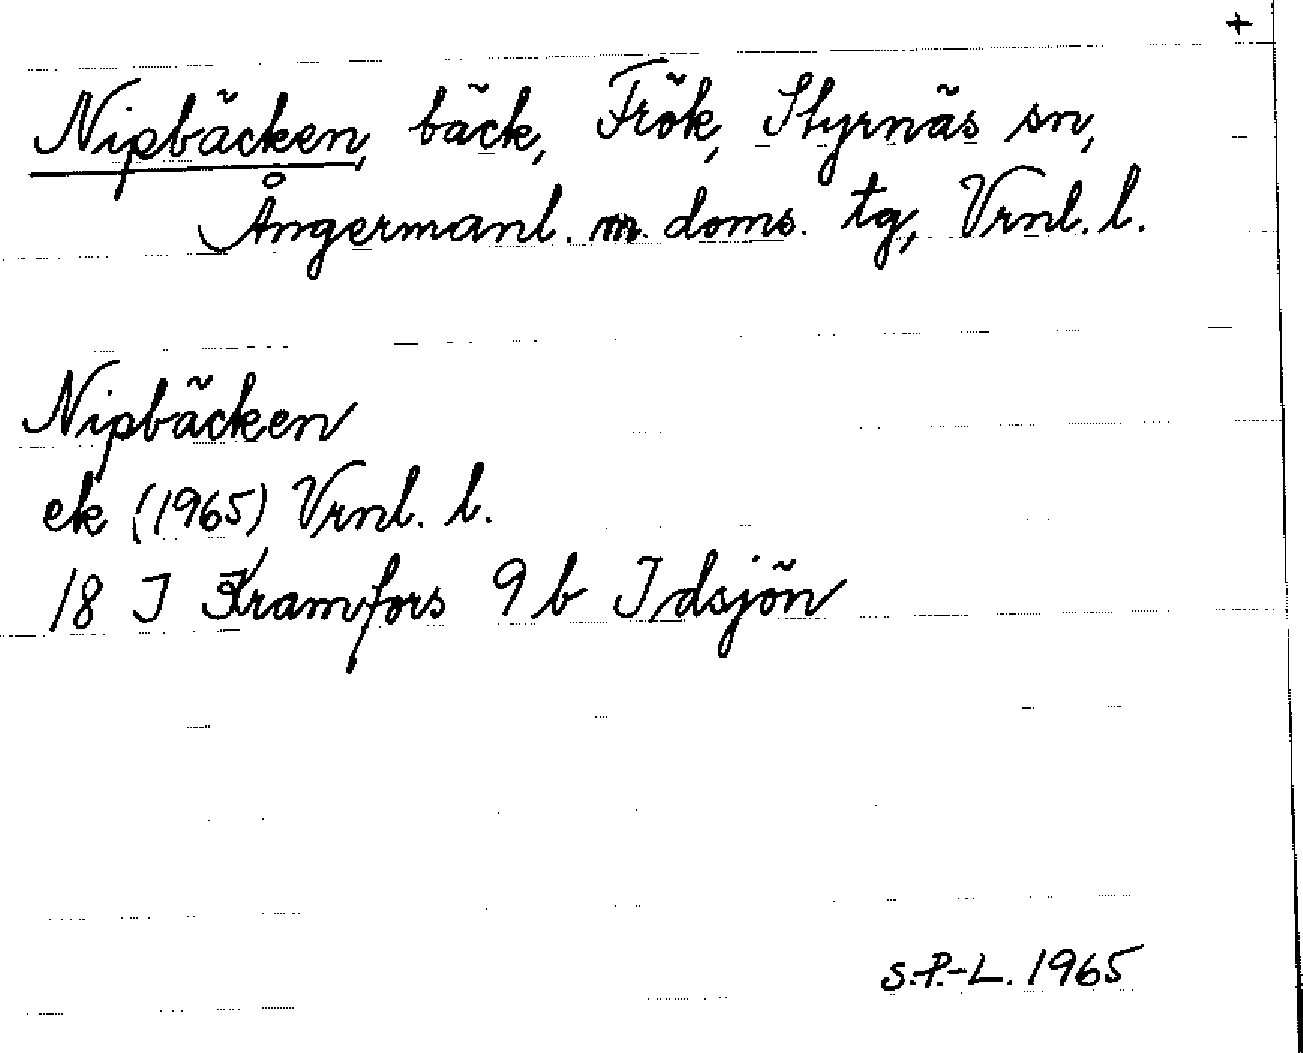 +
Nipbäcken, bäck, Frök, Styrnäs sn,
Ångermanl. m. doms. tg, Vrnl. l.
Nipbäcken
ek (1965) Vrnl. l.
18 I Kramfors 9 b Idsjön
S.P.-L. 1965